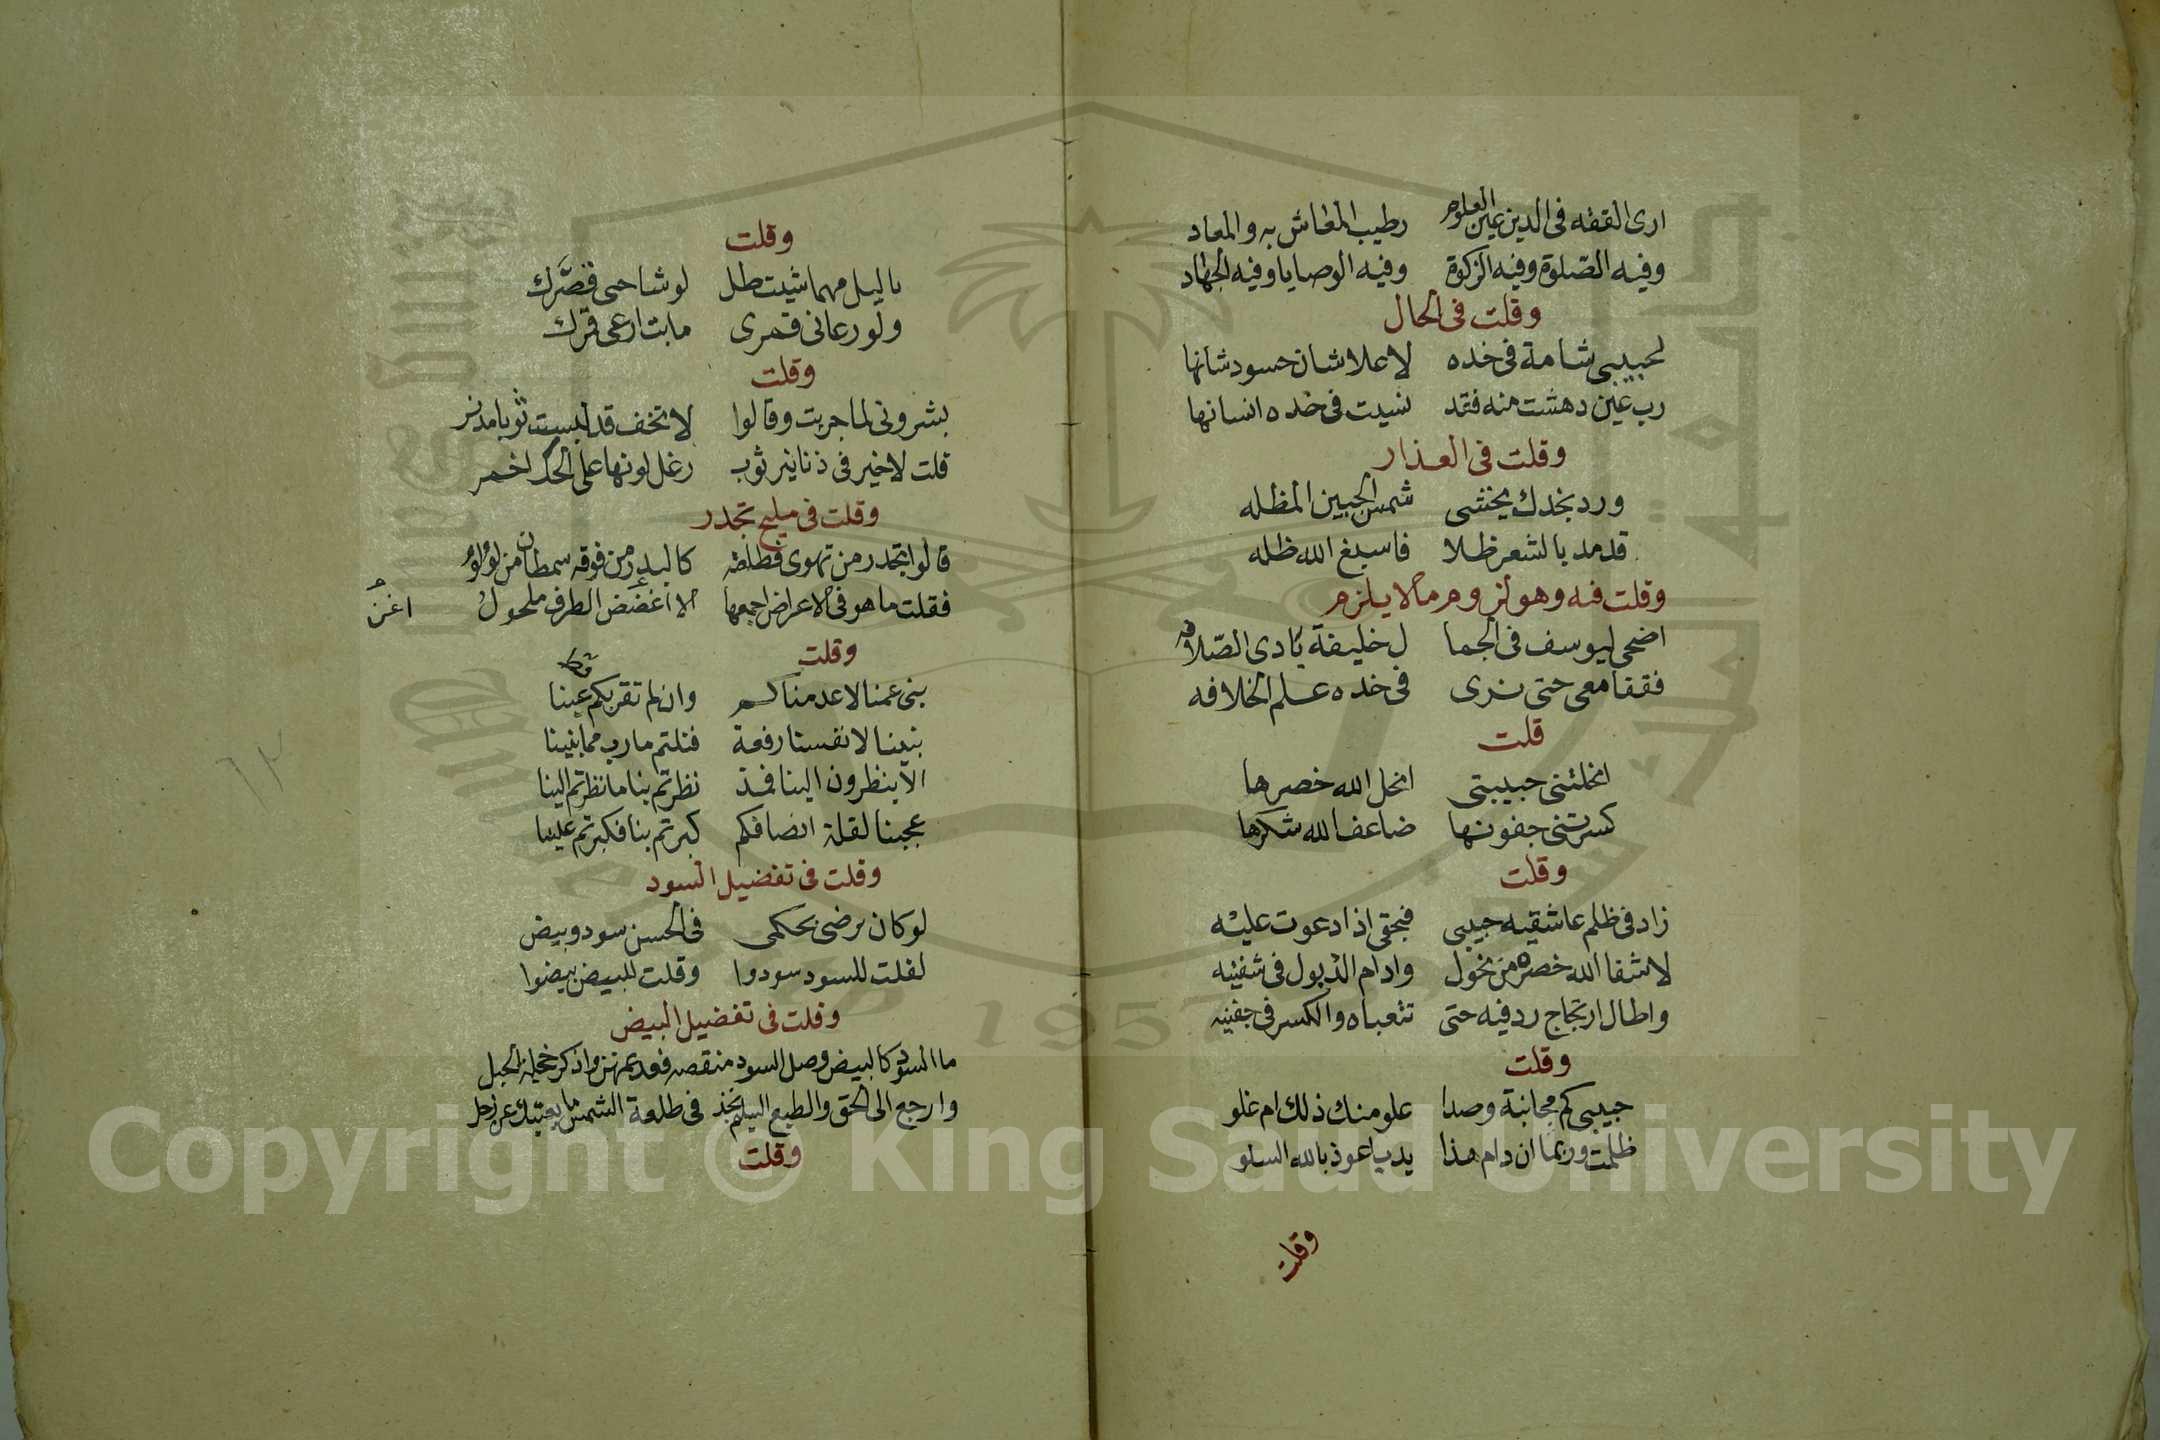 ارى الفقه فى الدين عين العلوم رطيب المعاش به والمعاد
وفيه الصلوة وفيه الزكوة وفيه الوصايا وفيه الجهاد
وقلت فى الخال
لحبيبى شامة فى خده لا علا شان حسود شانها
رب عين دهشت منه فقد نسيت فى خده انسانها
وقلت فى العذار
ورد بخدك يخشى شمس الجبين المظله
قد مد بالشعر ظلا فاسبغ الله ظله
وقلت فيه وهو لزوم مالا يلزم
اضحى ليوسف فى الجما ل خليفة بادى الصلافه
فقفا معى حتى نرى فى خده علم الخلافه
قلت
انحلتنى حبيبتى انحل الله خصرها
كسرتنى جفونها ضاعف الله شكرها
وقلت
زاد فى ظلم عاشقيه حبيبى فبحقى اذا دعوت عليه
لا شفا الله خصره من نحول وادام الذبول فى شفتيه
واطال ارتجاج ردفيه حتى تتعباه والكسر فى جفنيه
وقلت
حبيبى كم مجانبة وصدا علو منك ذلك ام غلو
ظلمت وربما ان دام هذا يدب اعوذ بالله السلو
وقلت
وقلت
يا ليل مهما شيت طل لو شا حبى قصّرك
ولو رعانى قمرى ما بت ارعى قمرك
وقلت
بشرونى لما جربت وقالوا لا تخف قد لبست ثوبا مدنر
قلت لا خير فى دنانير ثوب رغل لونها على الحك احمر
وقلت فى مليح تجدر
قالوا تجدر من تهوى فطلعته كالبدر من فوقه سمطان من لؤلؤ
فقلت ما هو فى الاعراض اجمعها الا اغضض الطرف مكحول
اغنُّ
وقلت
قط
بنى عمنا لا عدمناكم وان لم تقر بكم عينا
بنينا لانفسنا رفعة فنلتم مارب مما بنينا
الا ينظرون الينا فمذ نظرتم بنا ما نظرتم الينا
عجبنا لقلة انصافكم كبرتم بنا فكبرتم علينا
وقلت فى تفضيل السود
لو كان يرضى بحكمى فى الحسن سود وبيض
لقلت للسود سودوا وقلت للبيض بيضوا
وقلت فى تفضيل البيض
ما السود كالبيض وصل السود منقصه فعد بمهن واذكر خجلة الحبل
وارجع الى الحق والطبع السليم نجد فى طلعة الشمس ما يغنيك عن زحل
وقلت
١٢
1957
Copyright © King Saud University